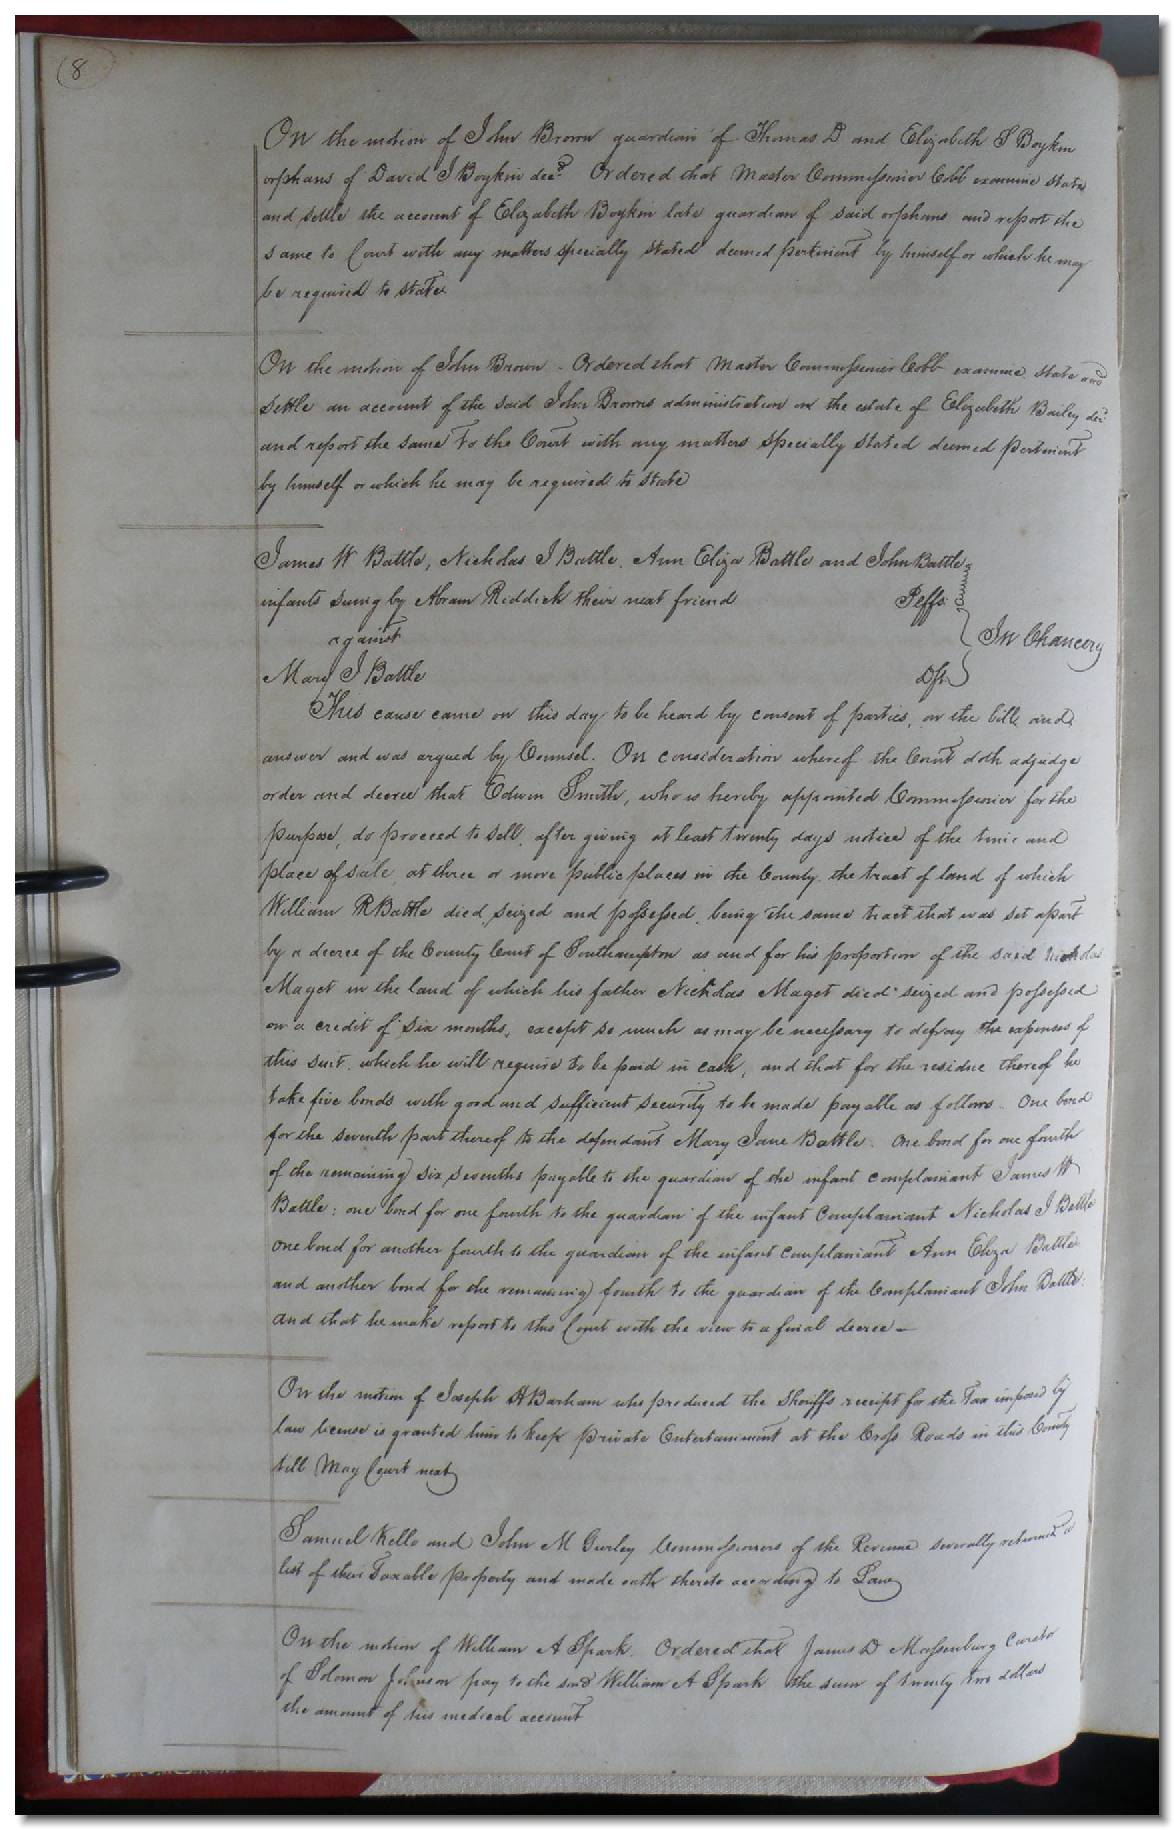 (8
On the motion of John Brown guardian of Thomas D and Elizabeth S Boykin
orphans of David J Boykin decd. Ordered that Master Commissioner Cobb examine state
and settle the account of Elizabeth Boykin late guardian of said orphans and report the
same to Court with any matters specially stated deemed pertinent by himself or which he may
be required to state
On the motion of John Brown - Ordered that Master Commissioner Cobb examine state and
settle an account of the said John Browns administration on the estate of Elizabeth Bailey dec
and report the same to the Court with any matters specially stated deemed pertinent
by himself or which he may be required to state
James W Battle, Nicholas J Battle, Ann Eliza Battle and John Battle
infants suing by Abram Riddick their next friend Pltffs
against In Chancery
Mary J Battle Dft
This cause came on this day to be heard by consent of parties, on the bill and
answer and was argued by Counsel. On consideration whereof the Court doth adjudge
order and decree that Edwin Smith, who is hereby appointed Commissioner for the
purpose, do proceed to sell, after giving at least twenty days notice of the time and
place of sale, at three or more public places in the County, the tract of land of which
William R Battle died seized and possessed, being the same tract that was set apart
by a decree of the County Court of Southampton as and for his proportion of the said Nicholas
Maget in the land of which his father Nicholas Maget died seized and possessed
on a credit of six months, except so much as may be necessary to defray the expenses of
this suit, which he will require to be paid in cash, and that for the residue thereof he
take five bonds with good and sufficient security to be made payable as follows. One bond
for the seventh part thereof to the defendant Mary Jane Battle. One bond for one fourth
of the remaining six sevenths payable to the guardian of the infant complainant James W
Battle; one bond for one fourth to the guardian of the infant Complainant Nicholas J Battle
one bond for another fourth to the guardian of the infant Complainant Ann Eliza Battle
and another bond for the remaining fourth to the guardian of the Complainant John Battle.
and that he make report to this Court with the view to a final decree—
On the motion of Joseph H Barham who produced the Sheriffs receipt for the Tax imposed by
law license is granted him to keep private Entertainment at the Cross Roads in this County
till May Court next
Samuel Kello and John M Gurley Commissioners of the Revenue severally returned a
list of their Taxable property and made oath thereto according to Law
On the motion of William A Spark. Ordered that James D Massenburg Curator
of Solomon Johnson pay to the said William A Spark the sum of twenty two dollars
the amount of his medical account